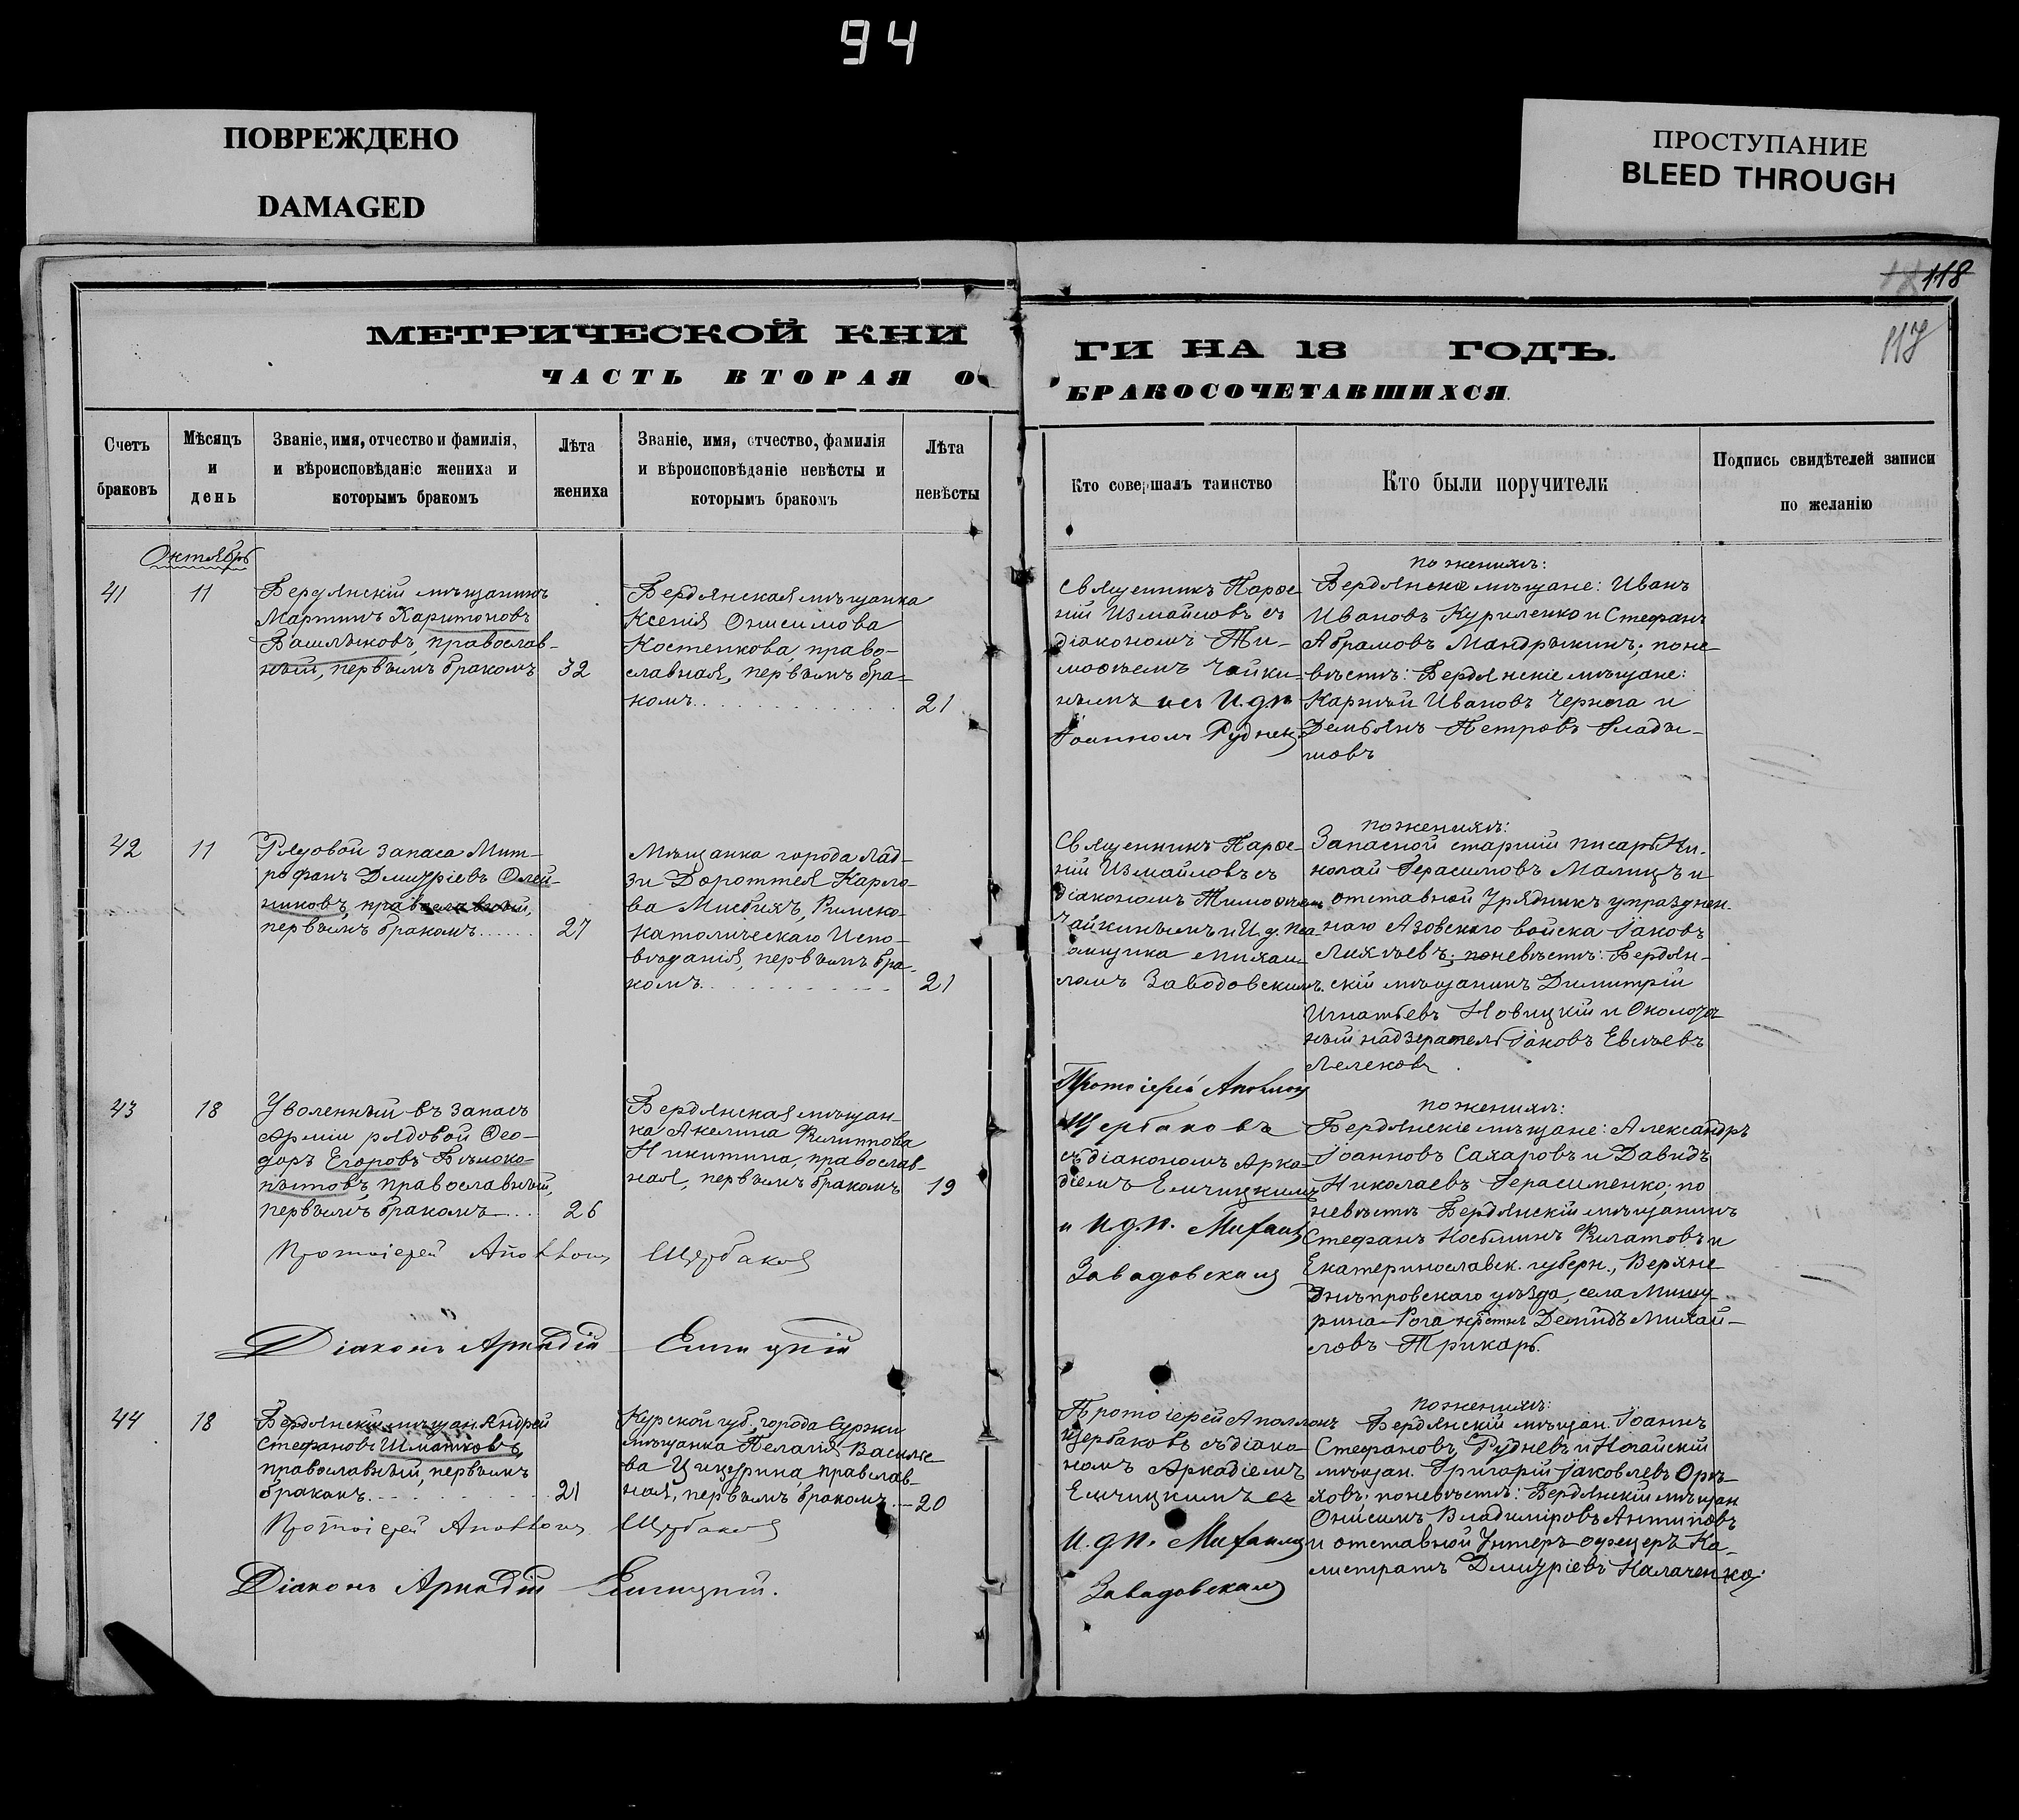 94
ПОВРЕЖДЕНО
DAMAGED
ПРОСТУПАНИЕ
BLEED THROUGH
118
117
МЕТРИЧЕСКОЙ КНИ
ГИ НА 18 ГОДЪ.
ЧАСТЬ ВТОРАЯ О
БРАКОСОЧЕТАВШИХСЯ.
Счетъ
браковъ
Мѣсяцъ
и
день
Званіе, имя, отчество и фамилія,
и вѣроисповѣданіе жениха и
которымъ бракомъ
Лѣта
жениха
Званіе, имя, отчество, фамилія
и вѣроисповѣданіе невѣсты и
которымъ бракомъ
Лѣта
невѣсты
Кто совершалъ таинство
Кто были поручители
Подпись свидѣтелей записи
по желанію
Октябрь
41
11
Бердянскій мѣщанинъ
Мартинъ Харитоновъ
Башлыковъ, православ-
ный, первымъ бракомъ
32
Бердянская мѣщанка
Ксенія Онисимова
Костенкова, право-
славная, первымъ бра-
комъ
21
Священникъ Парѳе-
ній Измайловъ съ
діакономъ Ти-
моѳеемъ Чайки-
нымъ и съ И.д.п.
Іоанномъ Руднев
по женихѣ:
Бердянскіе мѣщане: Иванъ
Ивановъ Куриленко и Стефанъ
Абрамовъ Мандрыкинъ; по не-
вѣстѣ: Бердянскіе мѣщане:
Карпъ Ивановъ Чернега и
Демьянъ Петровъ Глады-
шовъ
42
11
Рядовой запаса Мит-
рофанъ Дмитріевъ Олей-
никовъ, православный,
первымъ бракомъ
27
Мѣщанка города Лад-
зи Доротея Карло-
ва Римско-
католическаго Испо-
вѣданія, первымъ бра-
комъ
21
Священникъ Парѳе-
ній Измайловъ съ
діакономъ Тимоѳеемъ
Чайкинымъ и И.д. пса-
ломщика Михаи-
ломъ Заводовскимъ.
по женихѣ:
Запасной старшій писарь Ни-
колай Герасимовъ Малицъ и
отставной Урядникъ упразднен-
наго Азовскаго войска Іаковъ
по невѣстѣ: Бердян-
скій мѣщанинъ Димитрій
Игнатьевъ Новицкій и Околоточ
ный надзиратель Іаковъ
Лелековъ
43
18
Уволенный въ запасъ
Арміи рядовой Ѳео-
доръ Егоровъ Бѣлоко-
пытовъ, православный,
первымъ бракомъ
26
Бердянская мѣщан-
ка Акелина Филиппова
Никитина, православ-
ная, первымъ бракомъ
19
Протоіерей Аполлонъ
Щербаковъ
съ діакономъ Арка-
діемъ Емчицкимъ
и И.д.п. Михаил
Завадовскимъ
по женихѣ:
Бердянскіе мѣщане: Александръ
Іоанновъ Сахаровъ и Давидъ
Николаевъ Герасименко; по
невѣстѣ Бердянскій мѣщанинъ
Стефанъ Косьминъ Филатовъ и
Екатеринославск. губерн., Верхне-
днѣпровскаго уѣзда, села Мишу-
рина-Рога крестн. Демидъ Михай-
ловъ Трикарь.
Протоіерей Аполлонъ Щербаковъ
Діаконъ Аркадій Емчицкій
44
18
Бердянскій мѣщан. Андрей
Стефановъ Шматковъ,
православный, первымъ
бракомъ.
21
Курской губ., города Суджи
мѣщанка Пелагія Василье-
ва Цицурина, православ-
ная, первымъ бракомъ
20
Протоіерей Аполлонъ
Щербаковъ съ діако-
номъ Аркадіемъ
Емчицкимъ съ
И.д.п. Михаилом
Завадовскимъ
по женихѣ:
Бердянскій мѣщан. Іоаннъ
Стефановъ Рудневъ и Ногайскій
мѣщан. Григорій Іаковлевъ Орѣ-
ховъ; по невѣстѣ: Бердянскій мѣщан
Онисимъ Владиміровъ Антиповъ
и отставной Унтеръ офицеръ Ка-
листратъ Дмитріевъ Калаченко.
Протоіерей Аполлонъ Щербаковъ
Діаконъ Аркадій Емчицкій.